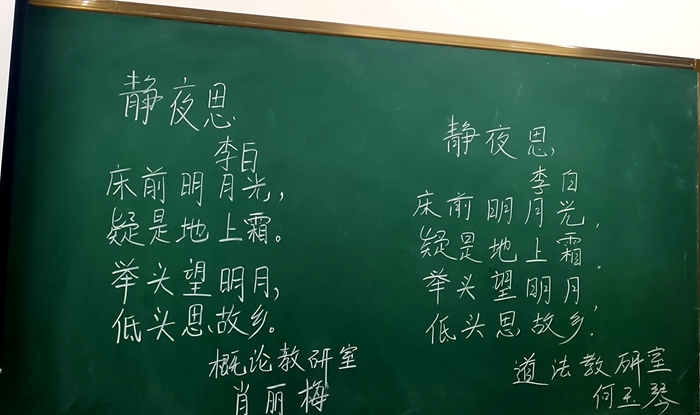 静夜思
李白
床前明月光,
疑是地上霜。
举头望明月,
低头思故乡。
概论教研室
肖丽梅
静夜思
李白
床前明月光,
疑是地上霜.
举头望明月,
低头思故乡.
道法教研室
何玉琴